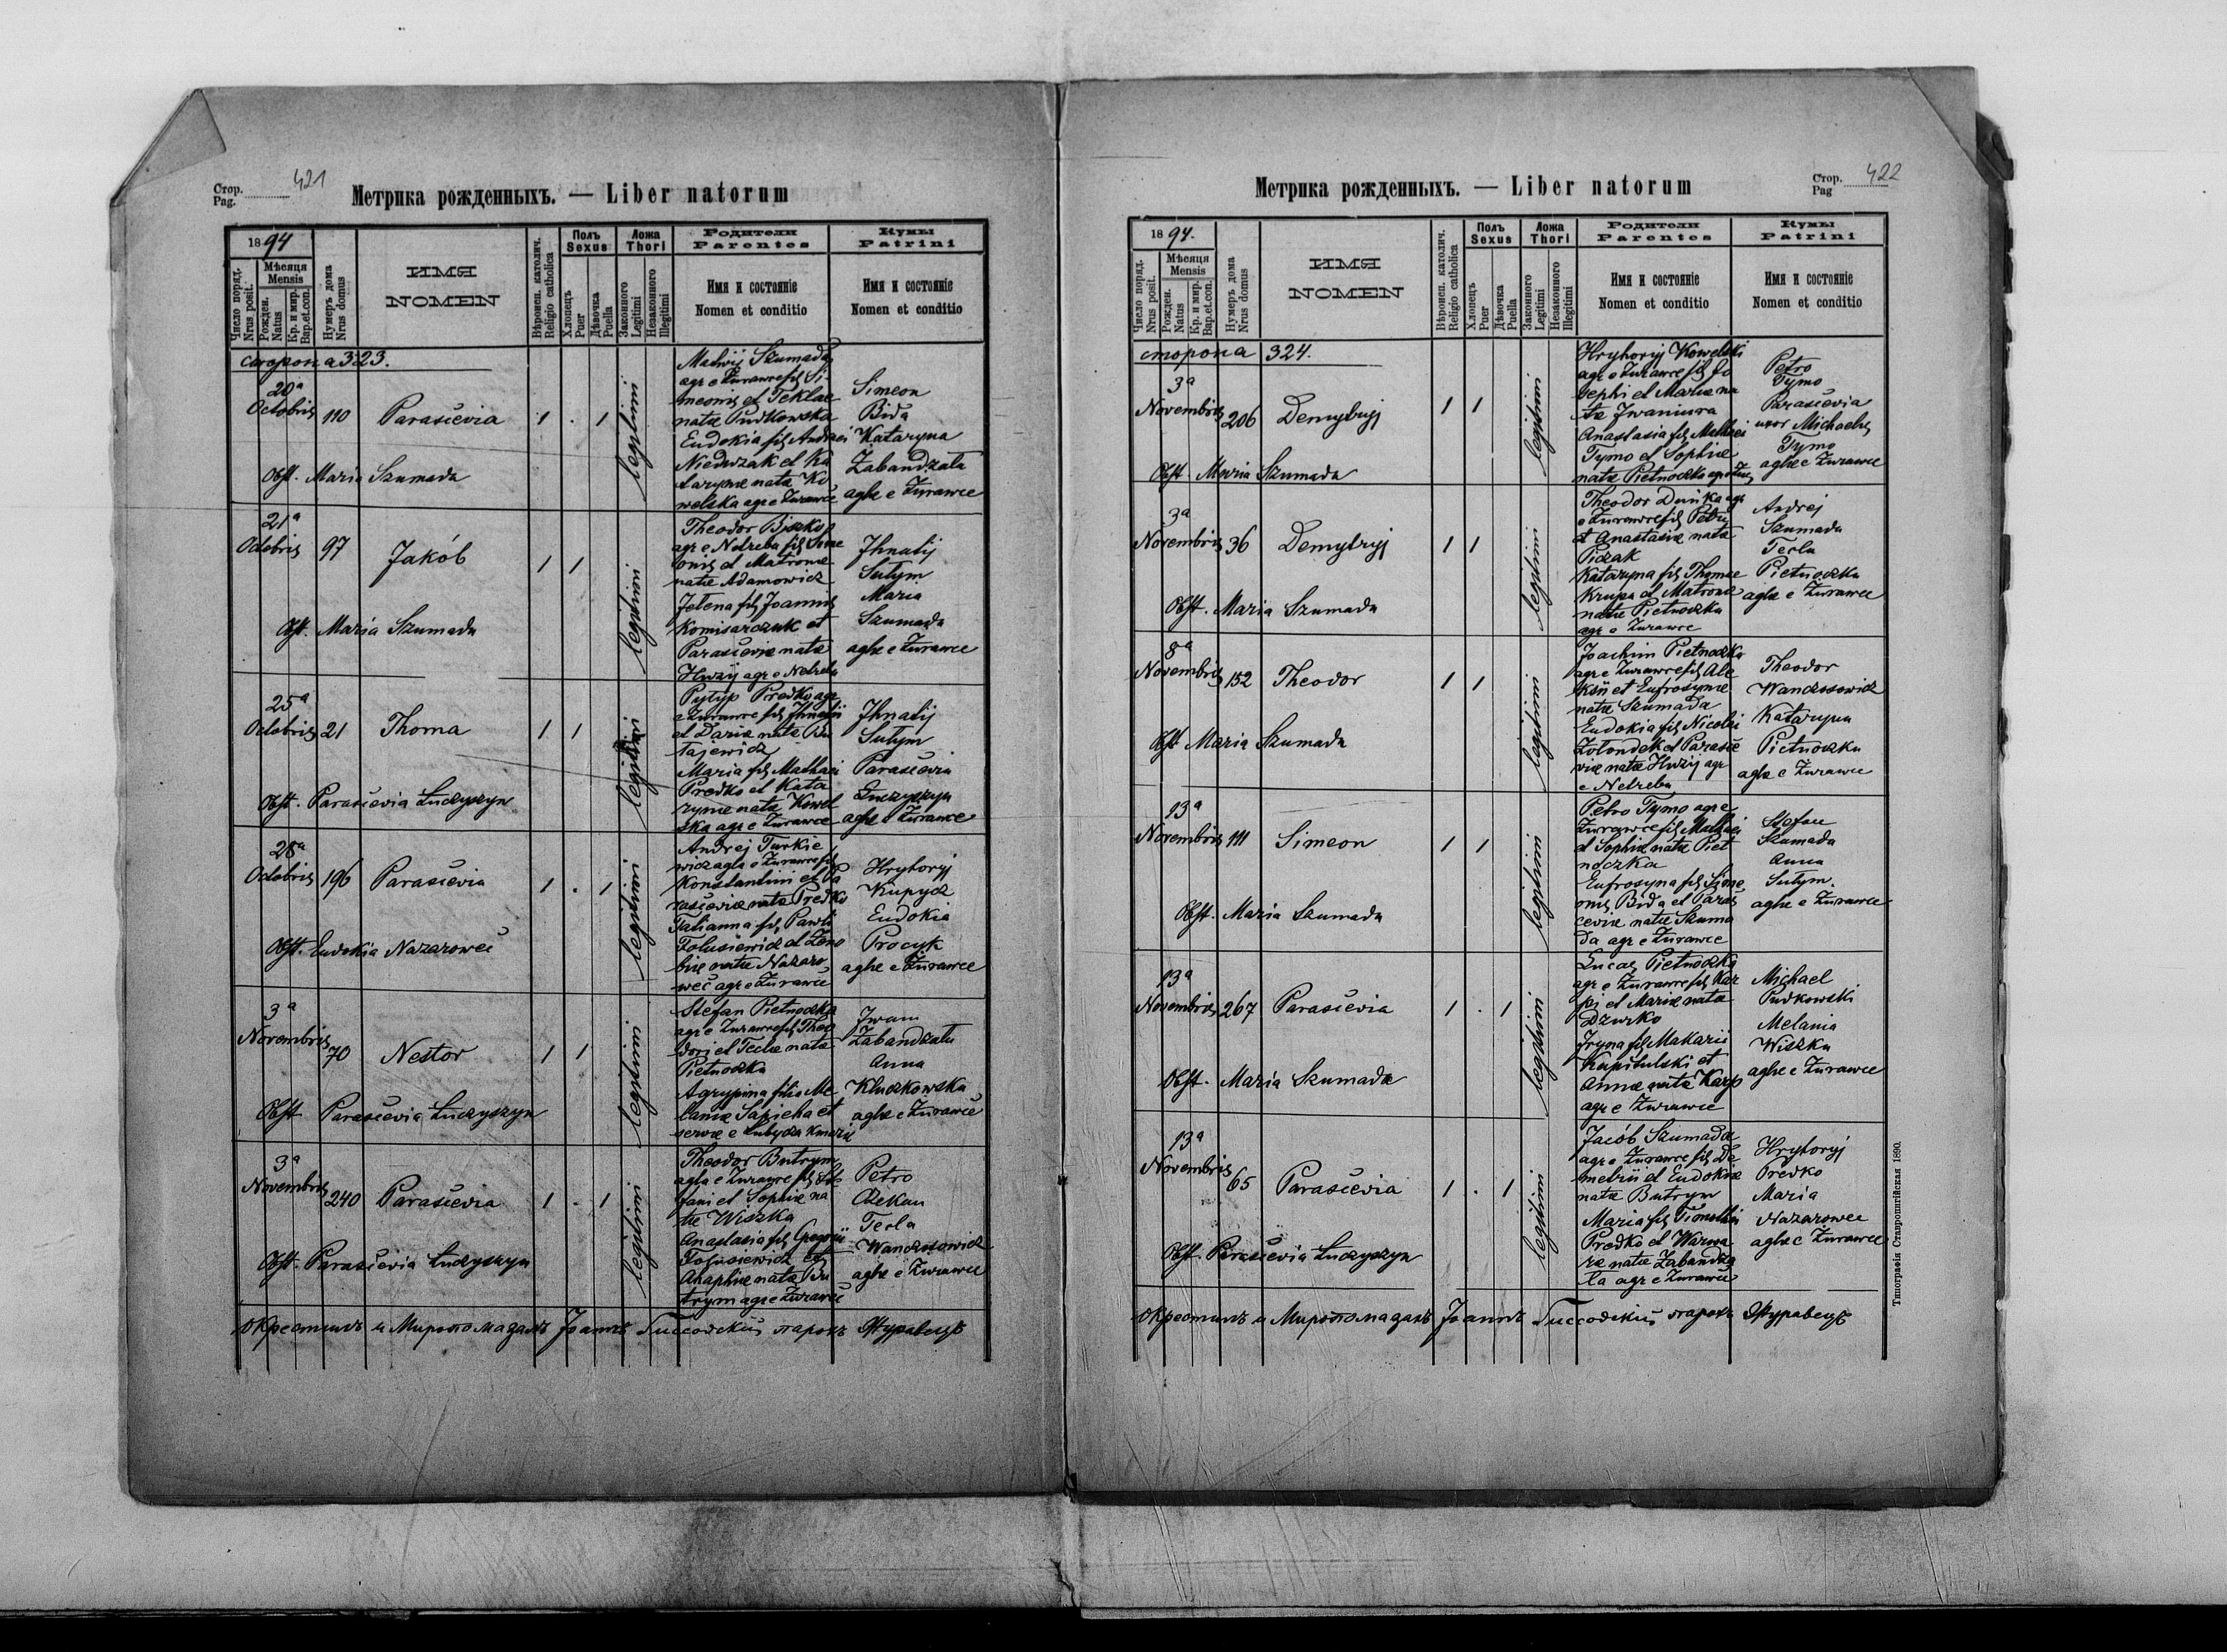 Стор.
Pag. 421
Метрика рожденныхъ. — Liber natorum
1894
Число поряд.
Nrus posit.
Мѣсяця
Mensis
Рожден.
Natus
Кр. и мир.
Bap.et.con.
Нумеръ дома
Nrus domus
ИМЯ
NOMEN
Вѣроисп. католич.
Religio catholica
Полъ
Sexus
Хлопецъ
Puer
Дѣвочка
Puella
Ложа
Thori
Законного
Legitimi
Незаконного
Illegitimi
Родители
Parentes
Имя и состояніе
Nomen et conditio
Кумы
Patrini
Имя и состояніе
Nomen et conditio
сторона 323.
20ª
Octobris 110 Parasievia 1 . 1 legitimi
Matwij Szumada
agr e Żurawce fil Si
meonis et Teklae
natae Pudkowska
Eudokia fil Andrei
Niedwzak et Ka
tarynae nata Ko
welska agr e Żurawce
Simeon
Bida
Kataryna
Zabandzała
aglae e Żurawce
Obst. Maria Szumada
21ª
Octobris 97 Jakób 1 1 legitimi
Theodor
agr e Netreba fil Sime
onis et Matronae
natae Adamowicz
Jełena fil Joannis
Komisarczuk et
Parasieviae nata
Hwzij agr e Netreba
Jhnatij
Sutym
Maria
Szumada
aglae e Żurawce
Obst. Maria Szumada
25ª
Octobris 21 Thoma 1 1 legitimi
Pyłyp Predko agr
e Żurawce fil Jhnatii
et Dariae nata Bu
łajewicz
Maria fil Mathaei
Predko et Kata
rynae nata Kowel
ska agr e Żurawce
Jhnatij
Sutym
Parasievia
Łuczyszyn
aglae e Żurawce
Obst. Parasievia Łuczyszyn
28ª
Octobris 196 Parasievia 1 . 1 legitimi
Andrej Turkie
wicz agla e Żurawce fil
Konstantini et Pa
rasieviae nata Predko
Tatianna fil Pawli
Tołusiewicz et Zeno
biae natae Nazaro
wec agr e Żurawce
Hryhoryj
Kupycz
Eudokia
Procyk
aglae e Żurawce
Obst. Eudokia Nazarowec
3ª
Novembris 70 Nestor 1 1 legitimi
Stefan Pietnoczka
agr e Żurawce fil Theo
dori et Teclae nata
Pietnoczka
Agrypina filia Me
laniae Sapieha et
servae e Lubycza Kniazie
Jwan
Zabandzała
Anna
Kluczkowska
aglae e Żurawce
Obst Parasievia Łuczyszyn
3ª
Novembris 240 Parasievia 1 . 1 legitimi
Theodor Butryn
agla e Żurawce fil Ste
fani et Sophiae na
tae Wiszka
Anastasia fil Gregorii
Tołusiewicz et
Ahaphiae nata Bu
tryn agr e Żurawce
Petro
Rekun
Tecla
Wanczosowicz
aglae e Żurawce
Obst. Parasievia Łuczyszyn
окрестилъ и Миропомазалъ Іоаннъ парохъ Журавецъ
Стор.
Pag 422
Метрика рожденныхъ. — Liber natorum
1894.
Число поряд.
Nrus posit.
Мѣсяця
Mensis
Рожден.
Natus
Кр. и мир.
Bap.et.con.
Нумеръ дома
Nrus domus
ИМЯ
NOMEN
Вѣроисп. католич.
Religio catholica
Полъ
Sexus
Хлопецъ
Puer
Дѣвочка
Puella
Ложа
Thori
Законного
Legitimi
Незаконного
Illegitimi
Родители
Parentes
Имя и состояніе
Nomen et conditio
Кумы
Patrini
Имя и состояніе
Nomen et conditio
сторона 324.
3ª
Novembris 206 Demytryj 1 1 legitimi
Hryhoryj Kowelski
agr e Żurawce fil Jo
sephi et Mariae na
tae Jwaniura
Anastasia fil Mathaei
Tymo et Sophiae
nata Pietnoczka agr e Żur
Petro
Tymo
Parasievia
uxor Michaelis
Tymo
aglae e Żurawce
Obst Maria Szumada
3ª
Novembris 36 Demytryj 1 1 legitimi
Theodor Dunka agr
e Żurawce fil Petri
et Anastasiae nata
Piczak
Kataryna fil Thomae
Krupa et Matronae
natae Pietnoczka
agr e Żurawce
Andrej
Szumada
Tecla
Pietnoczka
aglae e Żurawce
Obst. Maria Szumada
8ª
Novembris 152 Theodor 1 1 legitimi
Joachim Pietnoczka
agr e Żurawce fil Ale
ksii et Eufrosynae
natae Szumada
Eudokia fil Nicolai
Żołondek et Parasie
viae natae Hwzij agr
e Netreba
Theodor
Wanczosowicz
Kataryna
Pietnoczka
aglae e Żurawce
Obst Maria Szumada
13ª
Novembris 111 Simeon 1 1 legitimi
Petro Tymo agr e
Żurawce fil Mathaei
et Sophiae nata Piet
noczka
Eufrosyna fil Sime
onis Bida et Paras
ceviae natae Szuma
da agr e Żurawce
Stefan
Szumada
Anna
Sutym.
aglae e Żurawce
Obst. Maria Szumada
13ª
Novembris 267 Parasievia 1 . 1 legitimi
Lucas Pietnoczka
agr e Żurawce fil Kar
pi et Mariae nata
Dzurko
Jryna fil Makarii
Kapitulski et
Annae nata Karp
agr e Żurawce
Michael
Pudkowski
Melania
Wiszka
aglae e Żurawce
Obst. Maria Szumada
13ª
Novembris 65 Parasievia 1 . 1 legitimi
Jacób Szumada
agr e Żurawce fil De
metrii et Eudokiae
natae Butryn
Maria fil Timothei
Predko et Warwa
rae natae Zabandza
ła agr e Żurawce
Hryhoryj
Predko
Maria
Nazarowec
aglae e Żurawce
Obst. Parasievia Łuczyszyn
окрестилъ и Миропомазалъ Іоаннъ парохъ Журавецъ
Типографія Ставропигійская 1890.